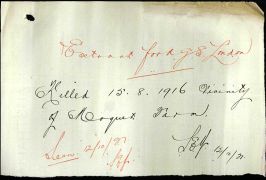 Extract for d. g. S. London
Killed 15.8.1916 Vicinity
of Moquet Farm.
12/10/21
12/10/21